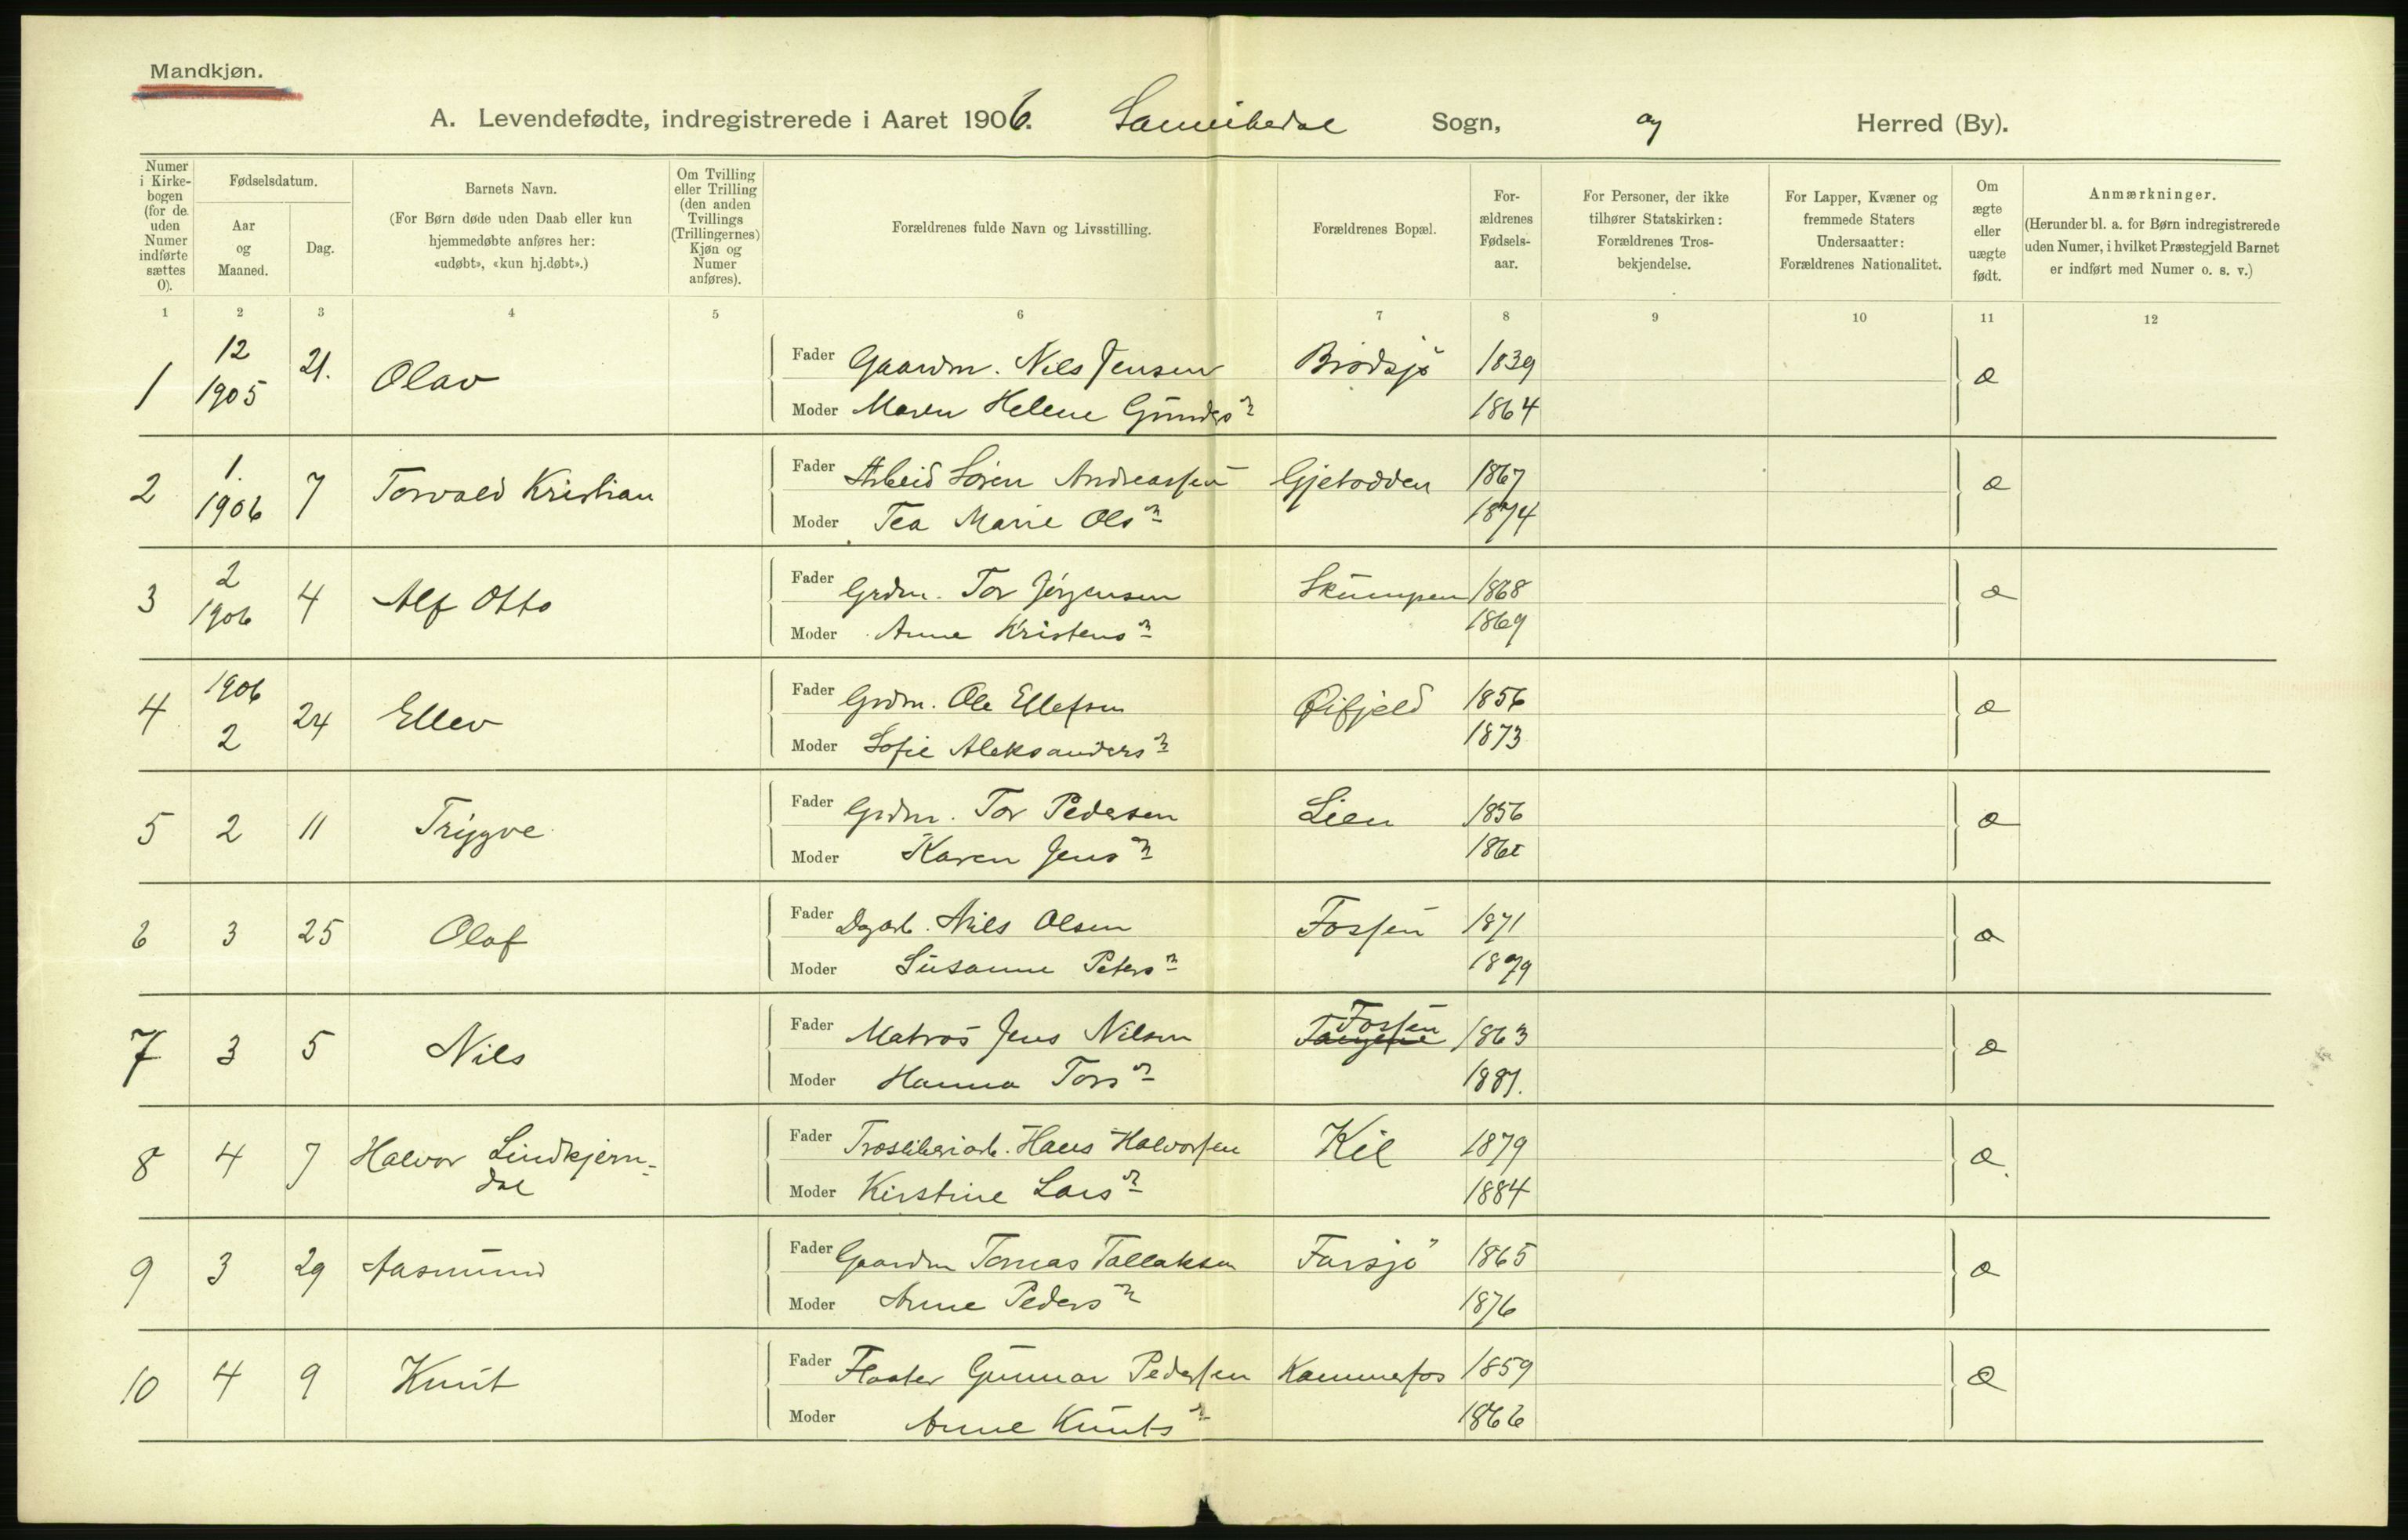 Mandkjøn.
A. Levendefødte, indregistrerede i Aaret 1906. Sannikedal Sogn, og Herred (By).
Numer i Kirkebogen (for de uden Numer indførte sættes 0).
Fødselsdatum.
Aar og Maaned.
Dag.
Barnets Navn.
(For Børn døde uden Daab eller kun hjemmedøbte anføres her: «udøbt», «kun hj.døbt».)
Om Tvilling eller Trilling (den anden Tvillings (Trillingernes) Kjøn og Numer anføres).
Forældrenes fulde Navn og Livsstilling.
Forældrenes Bopæl.
Forældrenes Fødselsaar.
For Personer, der ikke tilhører Statskirken: Forældrenes Trosbekjendelse.
For Lapper, Kvæner og fremmede Staters Undersaatter: Forældrenes Nationalitet.
Om ægte eller uægte født.
Anmærkninger.
(Herunder bl. a. for Børn indregistrerede uden Numer, i hvilket Præstegjeld Barnet er indført med Numer o. s. v.)
1 2 3 4 5 6 7 8 9 10 11 12
1 12 1905 21. Olav Fader Gaardm. Nils Jensen Brødsjø 1839 æ
Moder Maren Helene Gunders d. 1864
2 1. 1906 7 Torvald Kristian Fader Arbeid Søren Andreassen Gjetodden 1867 æ
Moder Tea Marie Ols d. 1874
3 2 1906 4 Alf Otto Fader Grdm. Tor Jørgensen Skumpen 1868 æ
Moder Anne Kristens d. 1869
4 1906 2 24 Ellev Fader Grdm. Ole Ellefsen Øifjeld 1856 æ
Moder Sofie Aleksanders d. 1873
5 2 11 Trygve Fader Grdm. Tor Pedersen Lien 1856 æ
Moder Karen Jens d.
6 3 25 Olaf Fader Dagarb. Nils Olsen Fossen 1871 æ
Moder Susanne Peters d. 1879
7 3 5 Nils Fader Matros Jens Nilsen Fossen 1863 æ
Moder Hanna Tors d. 1881.
8 4 7 Halvor Lindkjern-
dal Fader Træsliberiarb. Hans Halvorsen Kil 1879 æ.
Moder Kirstine Lars d. 1884
9 3 29 Aasmund Fader Gaardm Tomas Tallaksen Farsjø 1865 æ
Moder Anne Peders d. 1876
10 4 9 Knut Fader Fløter Gunnar Pedersen Kammerfos 1859 æ
Moder Anne Knuts d. 1866